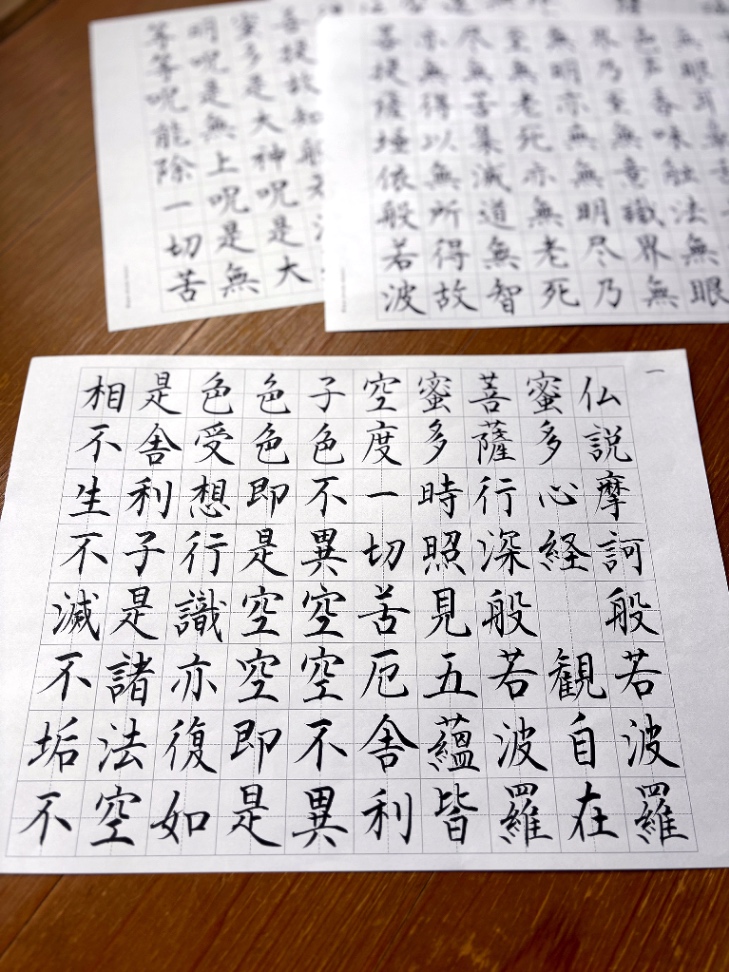 一
仏説摩訶般若波羅
蜜多心経 観自在
菩薩行深般若波羅
蜜多時照見五蘊皆
空度一切苦厄舎利
子色不異空空不異
色色即是空空即是
色受想行識亦復如
是舎利子是諸法空
相不生不滅不垢不
無眼耳鼻
色声香味触法無眼
界乃至無意識界無
無明亦無無明尽乃
至無老死亦無老死
尽無苦集滅道無智
亦無得以無所得故
菩提薩埵依般若波
菩提故知般若
蜜多是大神呪是大
明呪是無上呪是無
等等呪能除一切苦